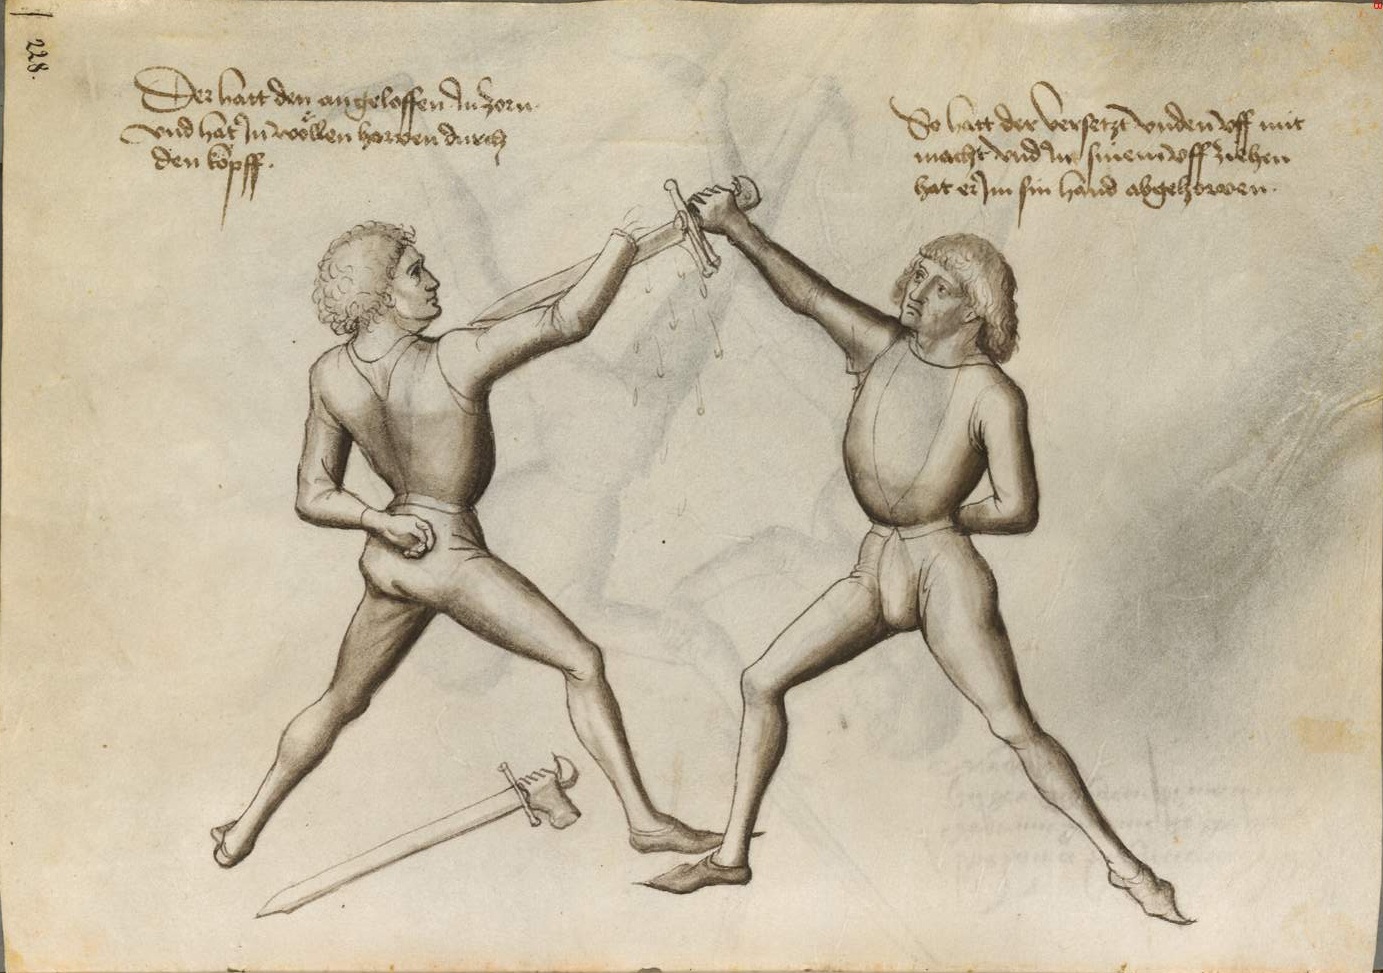 228.
Der hatt den angeloffen In zorn
vnd hat In wöllen howen durch
den kopff.
So hatt der versetzt vnden vff mit
macht vnd In sinem vff ziehen
hat er Im sin hand abgehowen.